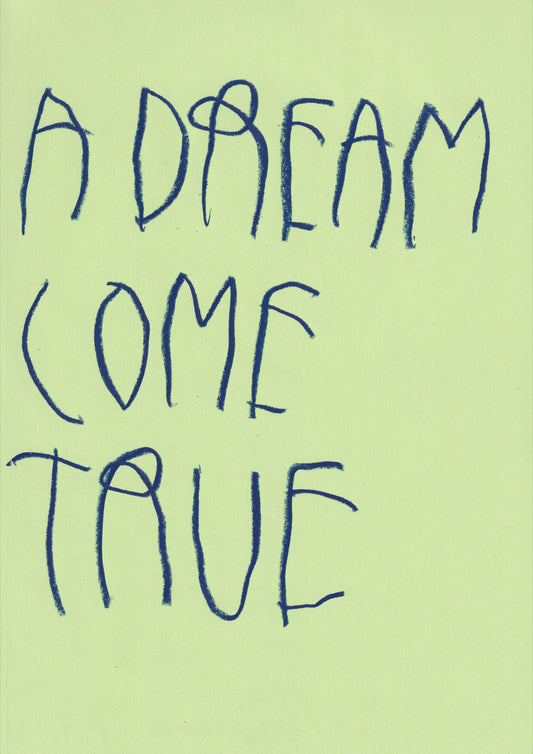 A DREAM
COME
TRUE